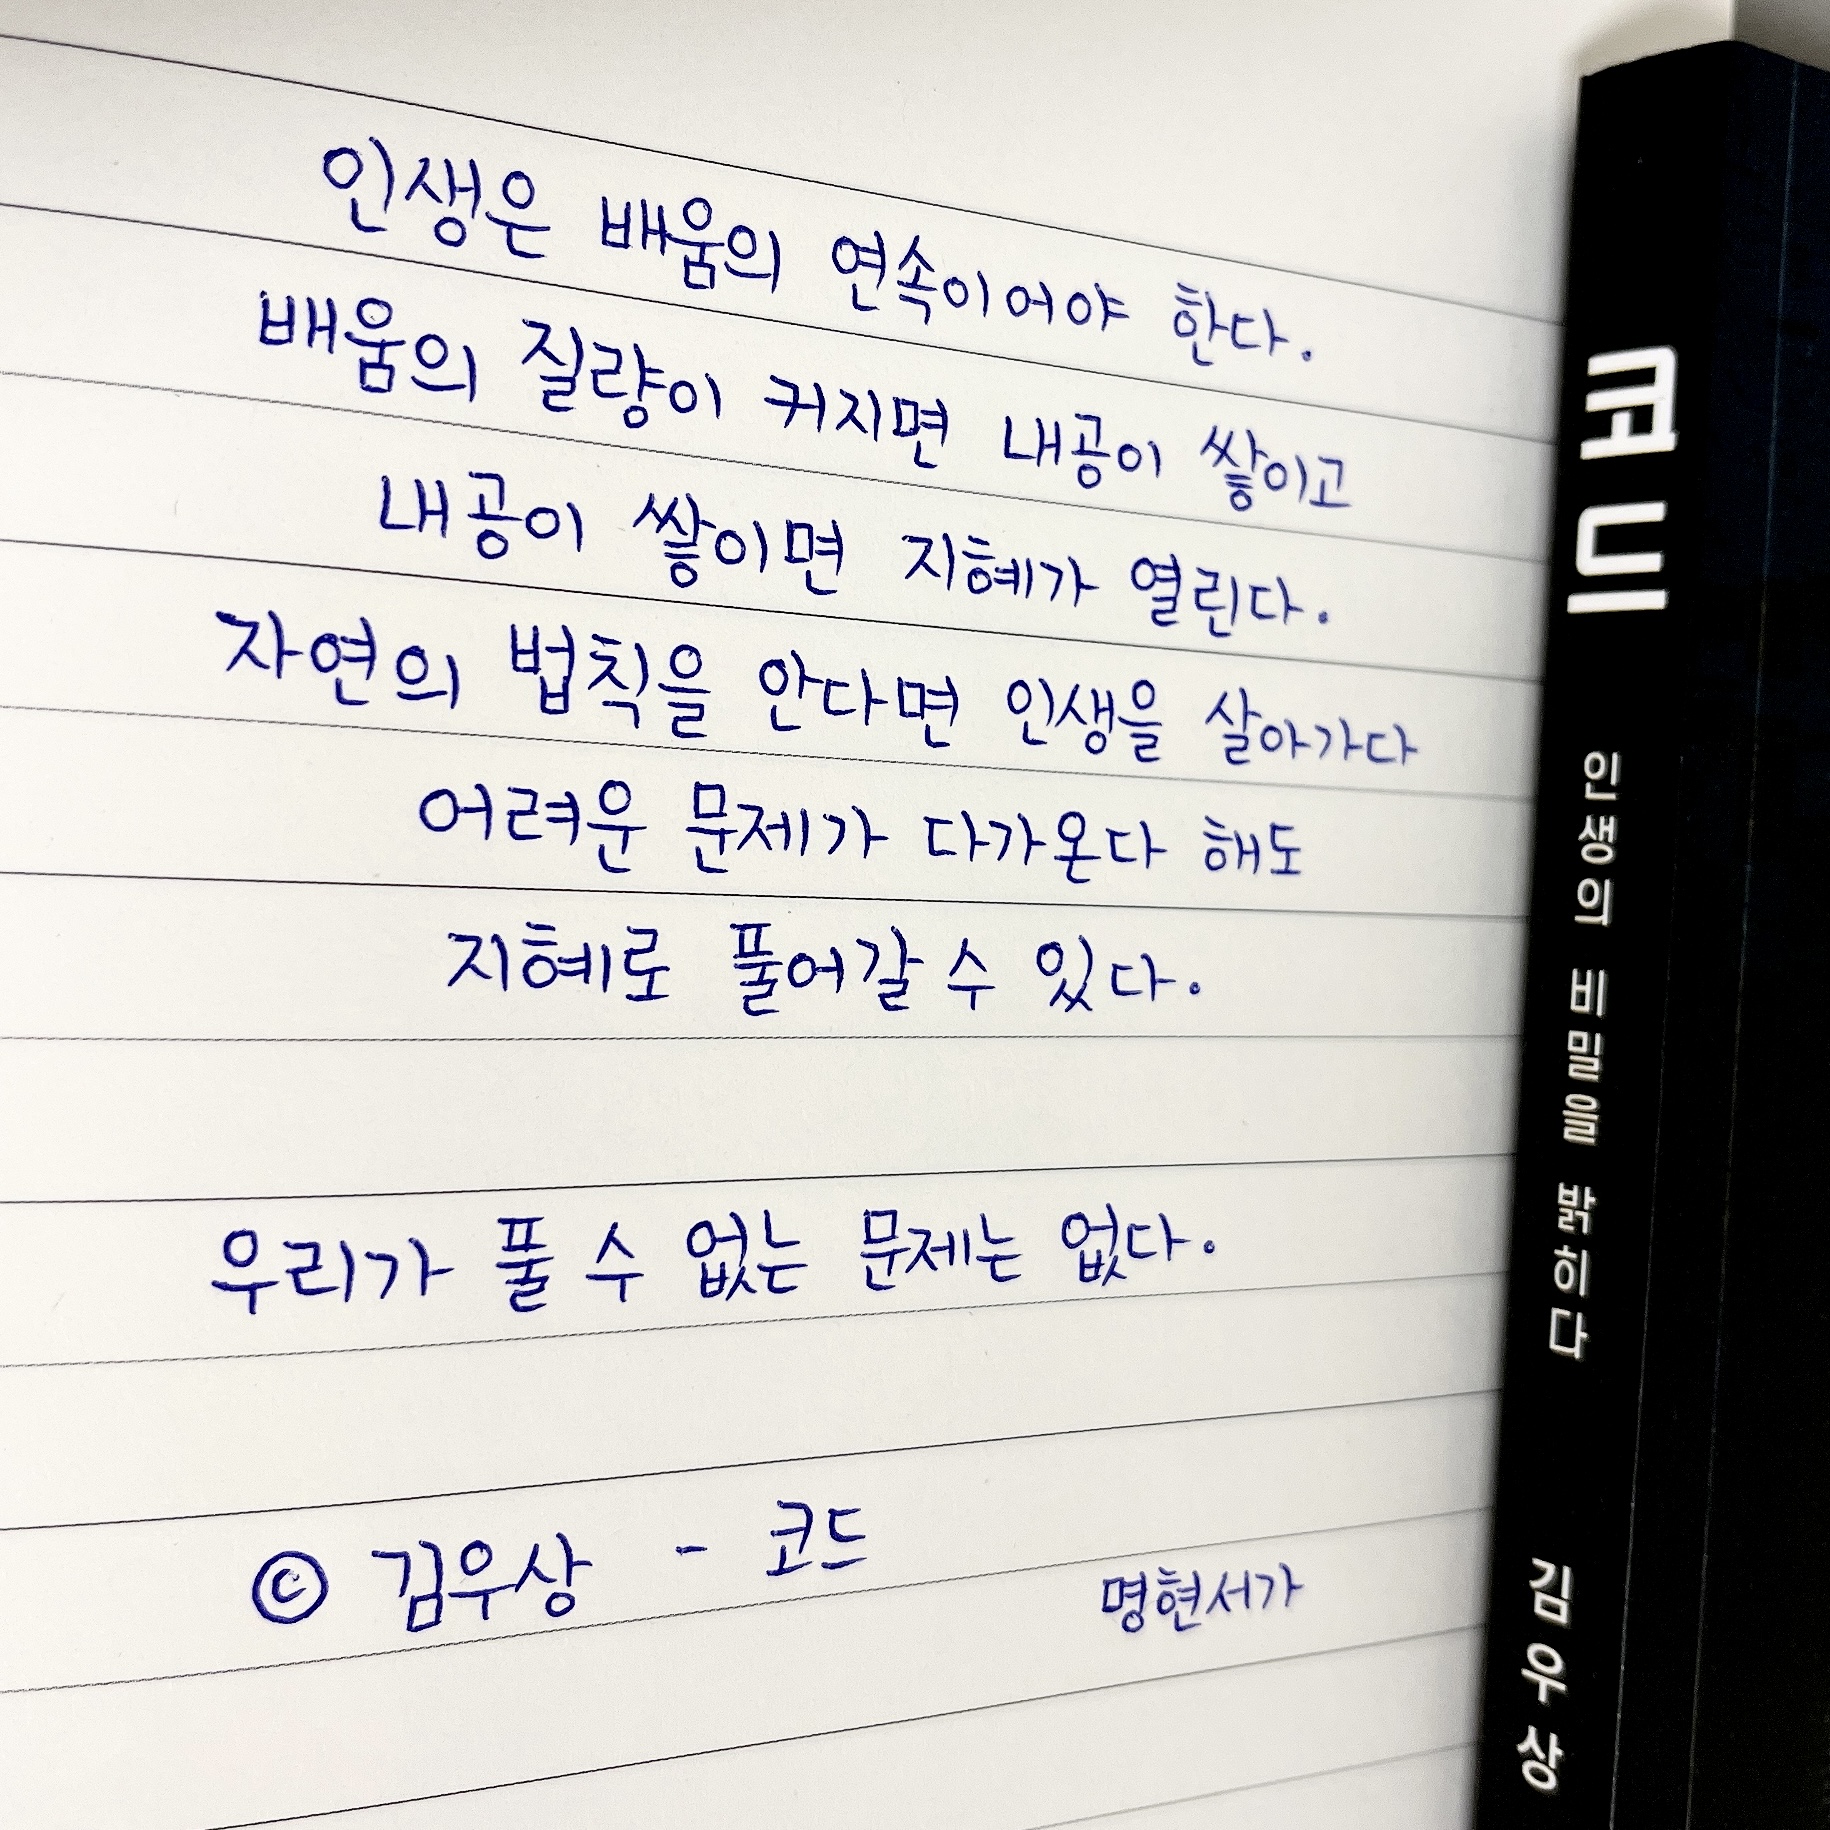 인생은 배움의 연속이어야 한다.
배움의 질량이 커지면 내공이 쌓이고
내공이 쌓이면 지혜가 열린다.
자연의 법칙을 안다면 인생을 살아가다
어려운 문제가 다가온다 해도
지혜로 풀어갈 수 있다.
우리가 풀 수 없는 문제는 없다.
© 김우상 - 코드
명현서가
코드 인생의 비밀을 밝히다 김우상